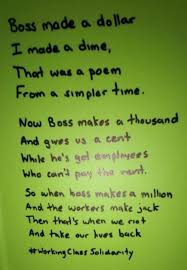 Boss made a dollar
I made a dime,
That was a poem
From a simpler time.
Now Boss makes a thousand
And gives us a cent
While he's got employees
Who can't pay the rent.
So when boss makes a million
And the workers make jack
Then that's when we riot
And take our lives back
#WorkingClassSolidarity